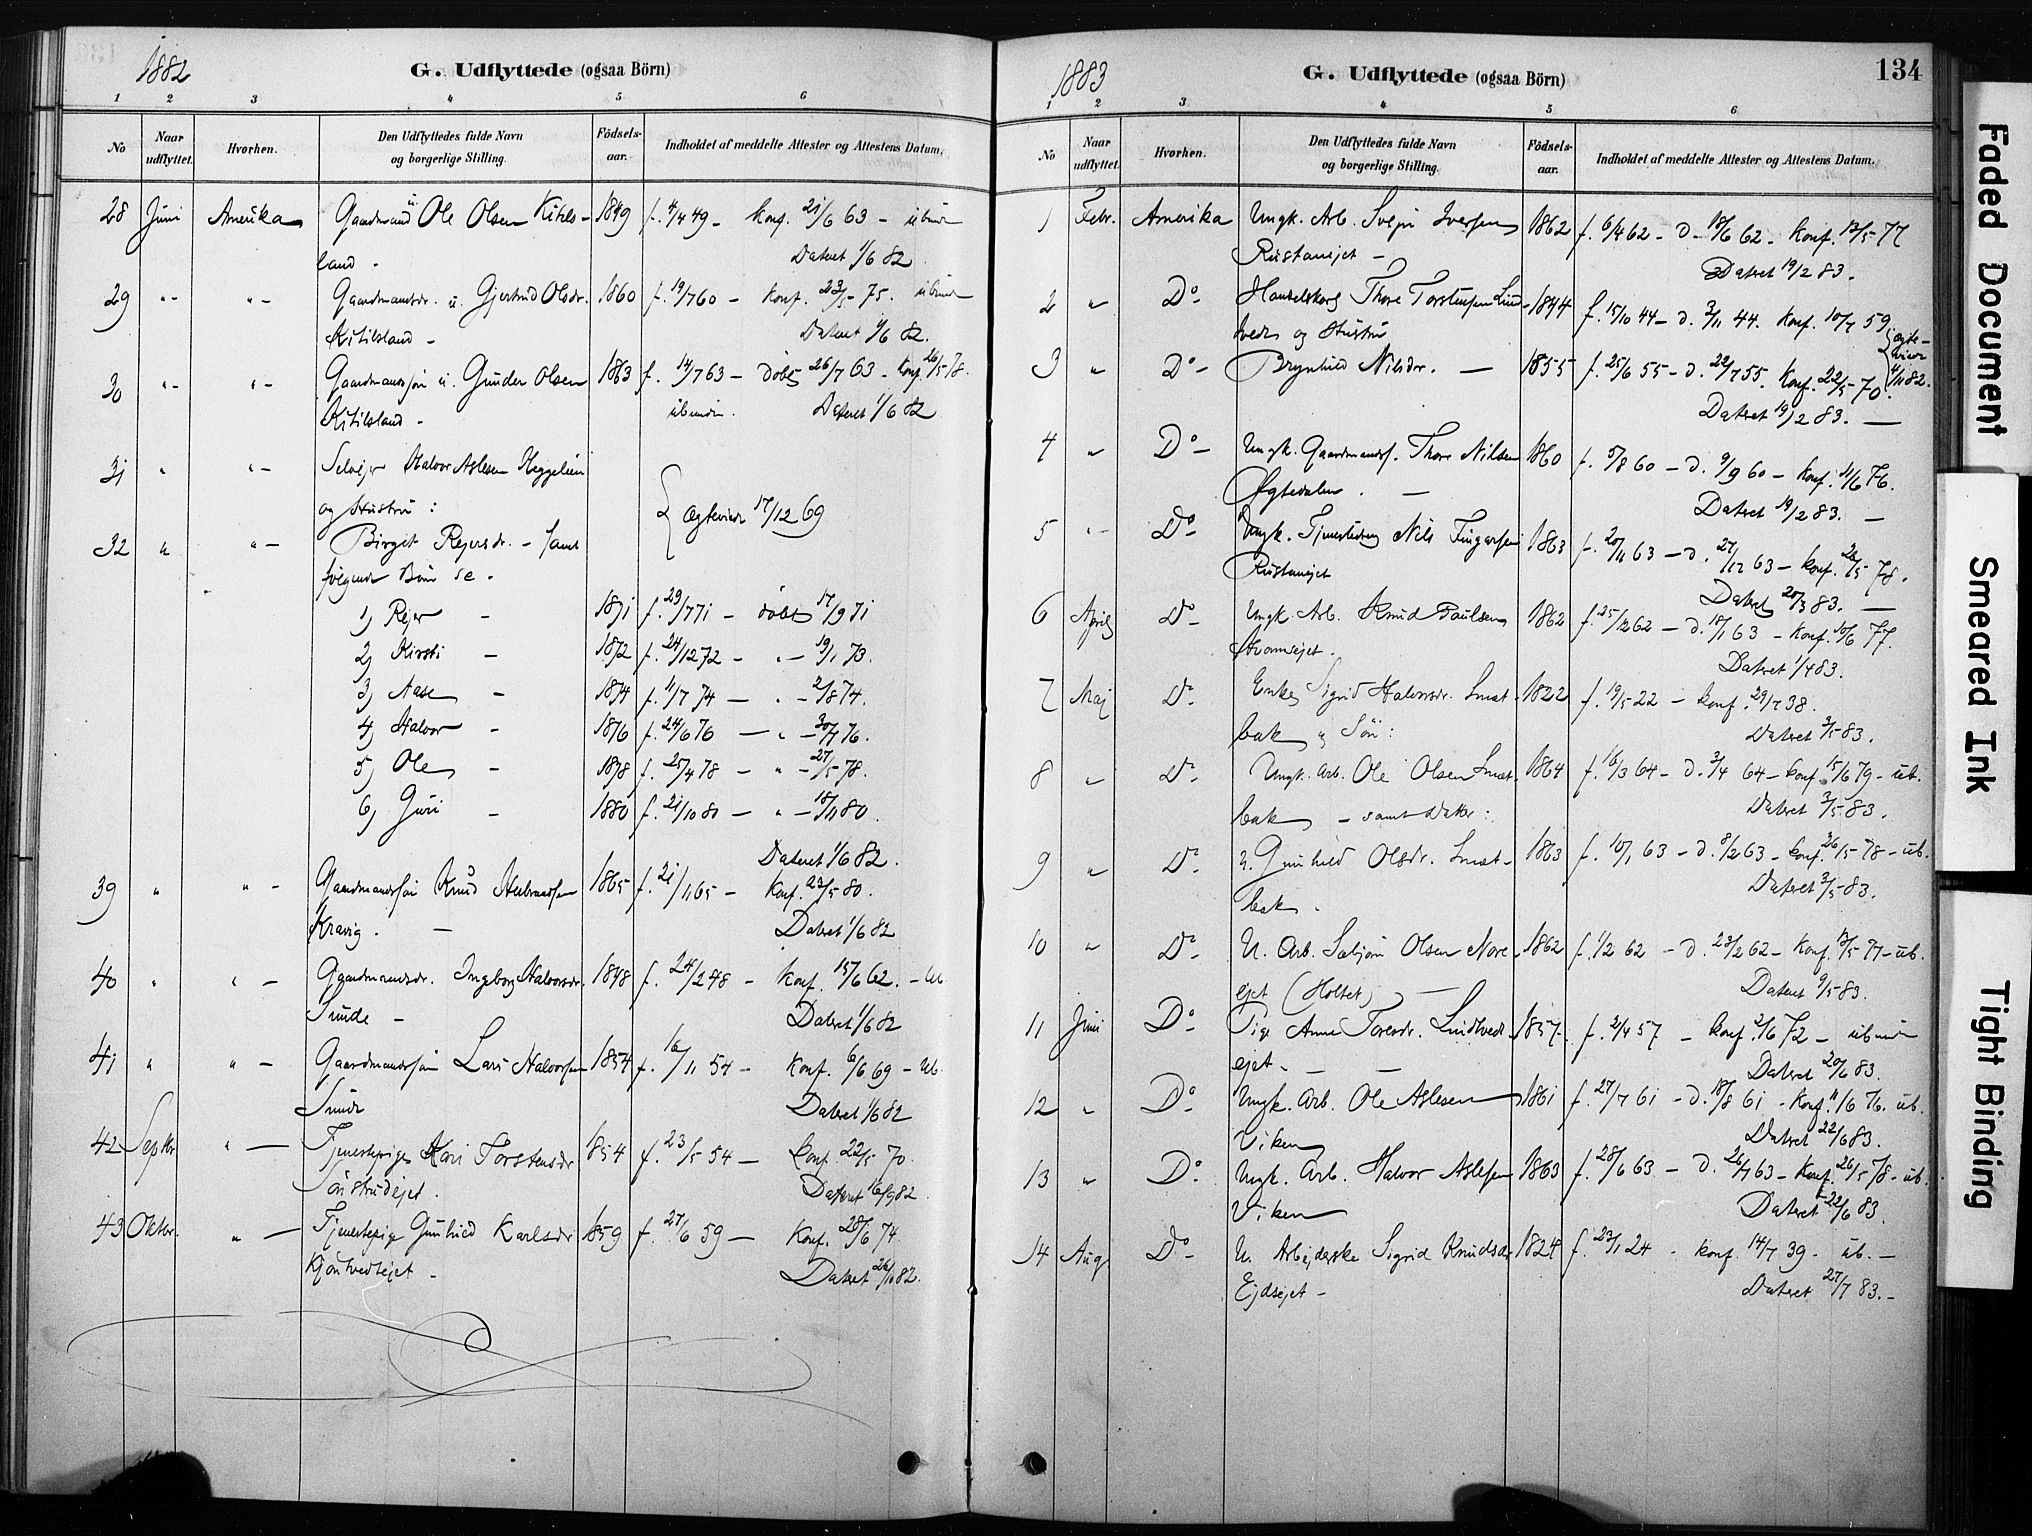 1882
G. Udflyttede (ogsaa Börn)
1 2 3 4 5 6
No
Naar udflyttet.
Hvorhen.
Den Udflyttedes fulde Navn og borgerlige Stilling.
Födsels-aar.
Indholdet af meddelte Attester og Attestens Datum.
28 Juni Amerika Gaardmand u. Ole Olsen Kitils- 1849 f. 4/4 49 - Konf. 21/6 63 - ubund
land - Dateret 1/6 82
29 "- "- Gaardmandsdr. u. Gjertrud Olsdr. 1860 f. 19/7 60 - Konf. 23/5 75. ubund
Kitilsland - Dateret 1/6 82.
30 "- "- Gaardmandssön u. Gunder Olsen 1863 f. 14/7 63 - döbt 26/7 63 - Konf. 26/5 78.
Kitilsland - ubunden. Dateret 1/6 82
31 " "- Selvejer Halvor Aslesen Heggelien
og Hustru : Ægteviede 17/12 69
32 " "- Birgit Rejersdr. - samt
følgende Börn se.
1) Rejer - 1871 f. 29/7 71 - döbt 17/9 71
2) Kirsti - 1872 f. 24/12 72 - "- 19/1 73.
3) Aase - 1874 f. 11/7 74 - "- 2/8 74.
4) Halvor - 1876 f. 24/6 76 - "- 30/7 76.
5) Ole - 1878 f. 25/4 78 - "- 27/5 78.
6) Guri - 1880 f. 21/10 80 - "- 18/11 80.
Dateret 1/6 82.
39 " "- Gaardmandssön Knud Herbrandsen 1865 f. 21/1 65 - Konf. 23/5 80.
Kravig. - Dateret 1/6 82
40 " "- Gaardmandsdr. Ingeborg Halvorsdr. 1848 f. 24/2 48 - Konf. 15/6 62. - ub
Sunde - Dateret 1/6 82
41 " "- Gaardmandssön Lars Halvorsen 1854 f. 16/11 54 - Konf. 6/6 69 - ub.
Sunde Dateret 1/6 82
42 Septbr "- Tjenestepige Kari Torstensdr 1854 f. 23/5 54 - Konf. 22/5 70.
Dateret 16/9 82
43 Oktbr. "- Tjenestepige Gunhild Karlsdr 1859 f. 27/6 59 - Konf. 28/6 74
Kjöntvedtejet - Dateret 26/10 82.
1883
G. Udflyttede (ogsaa Börn)
134
1 2 3 4 5 6
No
Naar udflyttet.
Hvorhen.
Den Udflyttedes fulde Navn og borgerlige Stilling.
Födsels-aar.
Indholdet af meddelte Attester og Attestens Datum.
1 Febr. Amerika Ungk. Arb. Svejn Iversen 1862 f. 6/4 62 - d. 18/6 62 - Konf. 13/5 77
Rustanejet - Dateret 19/2 83.
2 " Do- Handelskarl Thore Torstensen Lind- 1844 f. 15/10 44 - d. 3/11 44. Konf. 10/7 59
tvedt og Hustru ægte-
viede
4/11 82.
3 " Do- Brynhild Nilsdr. - 1855 f. 25/6 55 - d. 22/7 55. Konf. 22/5 70.
Dateret 19/2 83. -
4 " Do- Ungk. Gaardmands. Thore Nilsen 1860 f. 5/8 60 - d. 9/9 60 - Konf. 11/6 76.
Ögtedalen. - Dateret 19/2 83. -
5 "- Do- Ungk. Nils Fingarsen 1863 f. 20/11 63 - d. 27/12 63 - Konf. 26/5 78.
Rustanejet Dateret 20/3 83. -
6 April Do- Ungk. Arb. Knud Paulsen 1862 f. 25/12 62 - d. 18/1 63 - Konf. 10/6 77.
Dateret 1/4 83.
7 Maj Do Enke Sigrid Halvorsdr. Smet- 1822 f. 19/5 22 - Konf. 29/7 38.
bak og Sön: Dateret 3/5 83.
8 " Do Ungk. Arb. Ole Olsen Smet- 1864 f. 16/3 64 - d. 3/4 64 - Konf. 15/6 79 - ub.
bak - samt Datter: Dateret 3/5 83.
9 " Do u. Gunhild Olsdr. Smet- 1863 f. 10/1 63 - d. 8/2 63 - Konf. 26/5 78 - ub.
bak. Dateret 3/5 83.
10 " Do U. Arb. Sebjörn Olsen Nore- 1862 f. 1/2 62 - d. 23/2 62 - Konf. 13/5 77 - ub.
ejet (Holtet) - Dateret 9/5 83.
11 Juni Do- Pige Anne Toresdr. Lindtvedt- 1857 f. 2/4 57 - Konf. 2/6 72 - ubund
ejet - - Dateret 20/6 83.
12 " Do- Ungk. Arb. Ole Aslesen 1861 f. 27/7 61 - d. 18/8 61 - Konf. 11/6 76. ub.
Viken Dateret 22/6 83.
13 " Do- Ungk. Arb. Halvor Aslesen 1863 f. 28/6 63 - d. 26/7 63 - Konf. 26/5 78 - ub.
Viken Dateret 22/6 83.
14 Aug Do- U. Arbejderske Sigrid Knudsdr 1824 f. 23/1 24 - Konf. 14/7 39 - ub. -
Ejdsejet - Dateret 27/7 83. -
Faded Document
Smeared Ink
Tight Binding